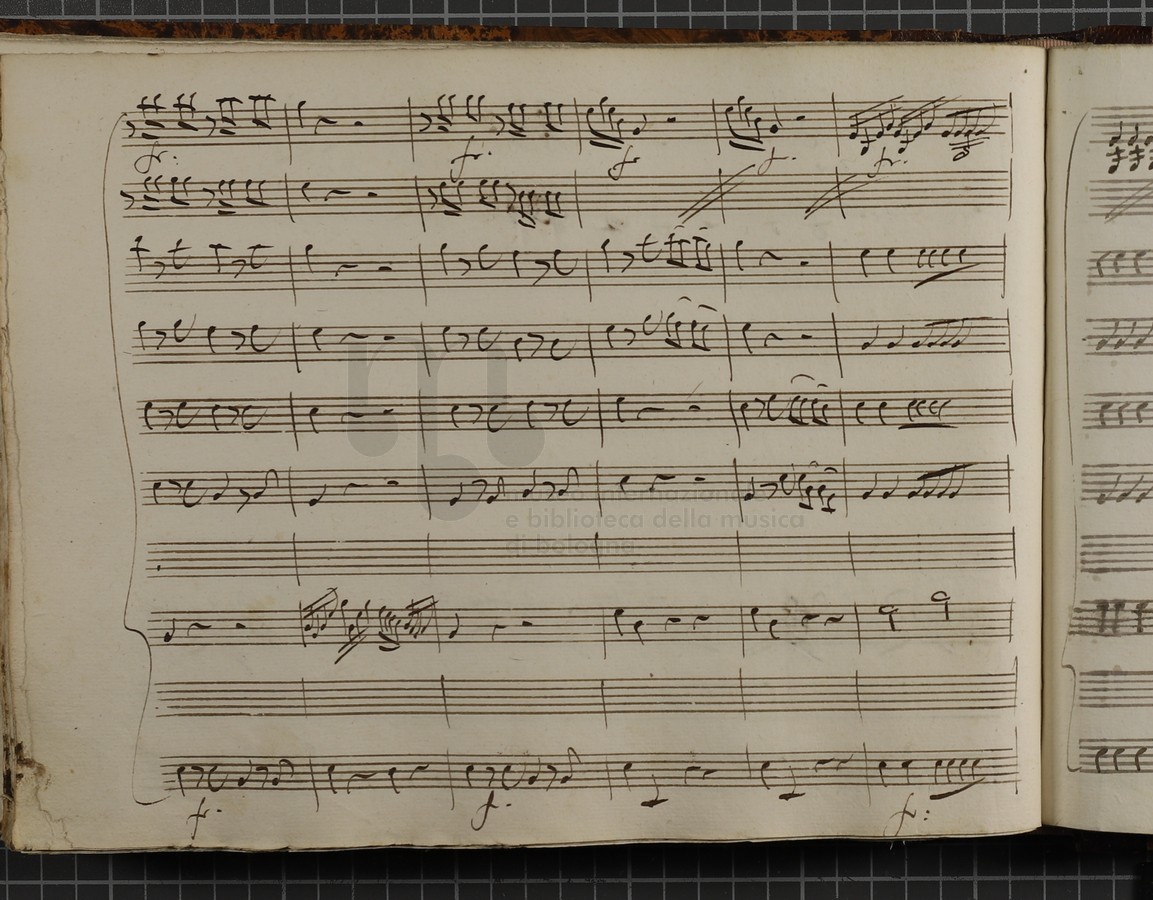 fr: fr: f f. fr:
museo internazionale
e biblioteca della musica
di bologna
fr. f. fr: